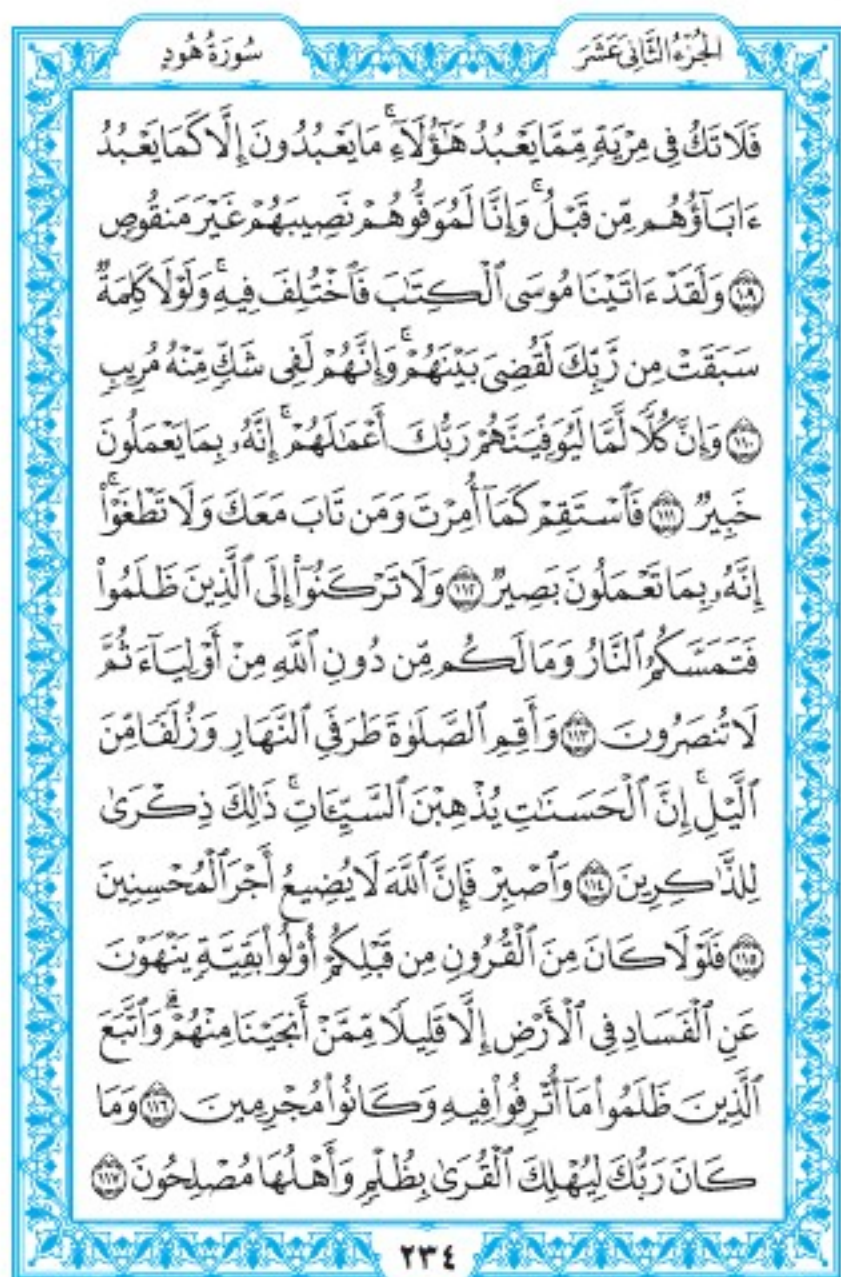 الجُزْءُ الثَّانِي عَشَرَ
سُورَةُ هُودٍ
فَلَا تَكُ فِي مِرْيَةٍ مِّمَّا يَعْبُدُ هَٰٓؤُلَآءِۚ مَا يَعْبُدُونَ إِلَّا كَمَا يَعْبُدُ
ءَابَآؤُهُم مِّن قَبْلُۚ وَإِنَّا لَمُوَفُّوهُمْ نَصِيبَهُمْ غَيْرَ مَنقُوصٍ
﴿١٠٩﴾ وَلَقَدْ ءَاتَيْنَا مُوسَى ٱلْكِتَٰبَ فَٱخْتُلِفَ فِيهِۚ وَلَوْلَا كَلِمَةٌ
سَبَقَتْ مِن رَّبِّكَ لَقُضِيَ بَيْنَهُمْۚ وَإِنَّهُمْ لَفِي شَكٍّ مِّنْهُ مُرِيبٍ
﴿١١٠﴾ وَإِنَّ كُلًّا لَّمَّا لَيُوَفِّيَنَّهُمْ رَبُّكَ أَعْمَٰلَهُمْۚ إِنَّهُۥ بِمَا يَعْمَلُونَ
خَبِيرٌ ﴿١١١﴾ فَٱسْتَقِمْ كَمَآ أُمِرْتَ وَمَن تَابَ مَعَكَ وَلَا تَطْغَوْا۟ۚ
إِنَّهُۥ بِمَا تَعْمَلُونَ بَصِيرٌ ﴿١١٢﴾ وَلَا تَرْكَنُوٓا۟ إِلَى ٱلَّذِينَ ظَلَمُوا۟
فَتَمَسَّكُمُ ٱلنَّارُ وَمَا لَكُم مِّن دُونِ ٱللَّهِ مِنْ أَوْلِيَآءَ ثُمَّ
لَا تُنصَرُونَ ﴿١١٣﴾ وَأَقِمِ ٱلصَّلَوٰةَ طَرَفَيِ ٱلنَّهَارِ وَزُلَفًا مِّنَ
ٱلَّيْلِۚ إِنَّ ٱلْحَسَنَٰتِ يُذْهِبْنَ ٱلسَّيِّـَٔاتِۚ ذَٰلِكَ ذِكْرَىٰ
لِلذَّٰكِرِينَ ﴿١١٤﴾ وَٱصْبِرْ فَإِنَّ ٱللَّهَ لَا يُضِيعُ أَجْرَ ٱلْمُحْسِنِينَ
﴿١١٥﴾ فَلَوْلَا كَانَ مِنَ ٱلْقُرُونِ مِن قَبْلِكُمْ أُو۟لُوا۟ بَقِيَّةٍ يَنْهَوْنَ
عَنِ ٱلْفَسَادِ فِي ٱلْأَرْضِ إِلَّا قَلِيلًا مِّمَّنْ أَنجَيْنَا مِنْهُمْۗ وَٱتَّبَعَ
ٱلَّذِينَ ظَلَمُوا۟ مَآ أُتْرِفُوا۟ فِيهِ وَكَانُوا۟ مُجْرِمِينَ ﴿١١٦﴾ وَمَا
كَانَ رَبُّكَ لِيُهْلِكَ ٱلْقُرَىٰ بِظُلْمٍ وَأَهْلُهَا مُصْلِحُونَ ﴿١١٧﴾
٢٣٤